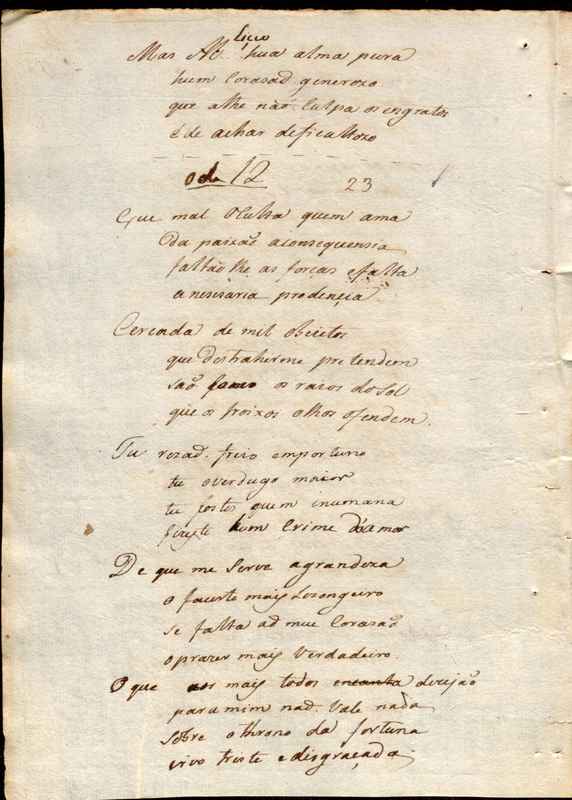 Licio
Mas Ah. hua alma pura
hum Corasaõ generozo
que a lhe não Culpa os engratos
é de achar deficultozo
ode 12
23
Que mal Oculta quem ama
da paixaõ aconsequensia
faltaõ lhe as forcas efalta
anesesaria prodencia
Cercada de mil Obietos
que destraherme pretendem
saõ como os raios do Sol
que os froixos olhos ofendem.
Tu rezaõ. freio emportuno
tu overdugo maior
tu fostes quem inumana
fizeste hum Crime do amor
De que me Serve agrandeza
o fausto mais Lesongeiro
se falta ao meu Corasaõ
oprazer mais Verdadeiro.
O que aos mais todos encanta dezejaõ
para mim naõ. Vale nada
sobre othrono da fortuna
vivo triste edisgraçada.